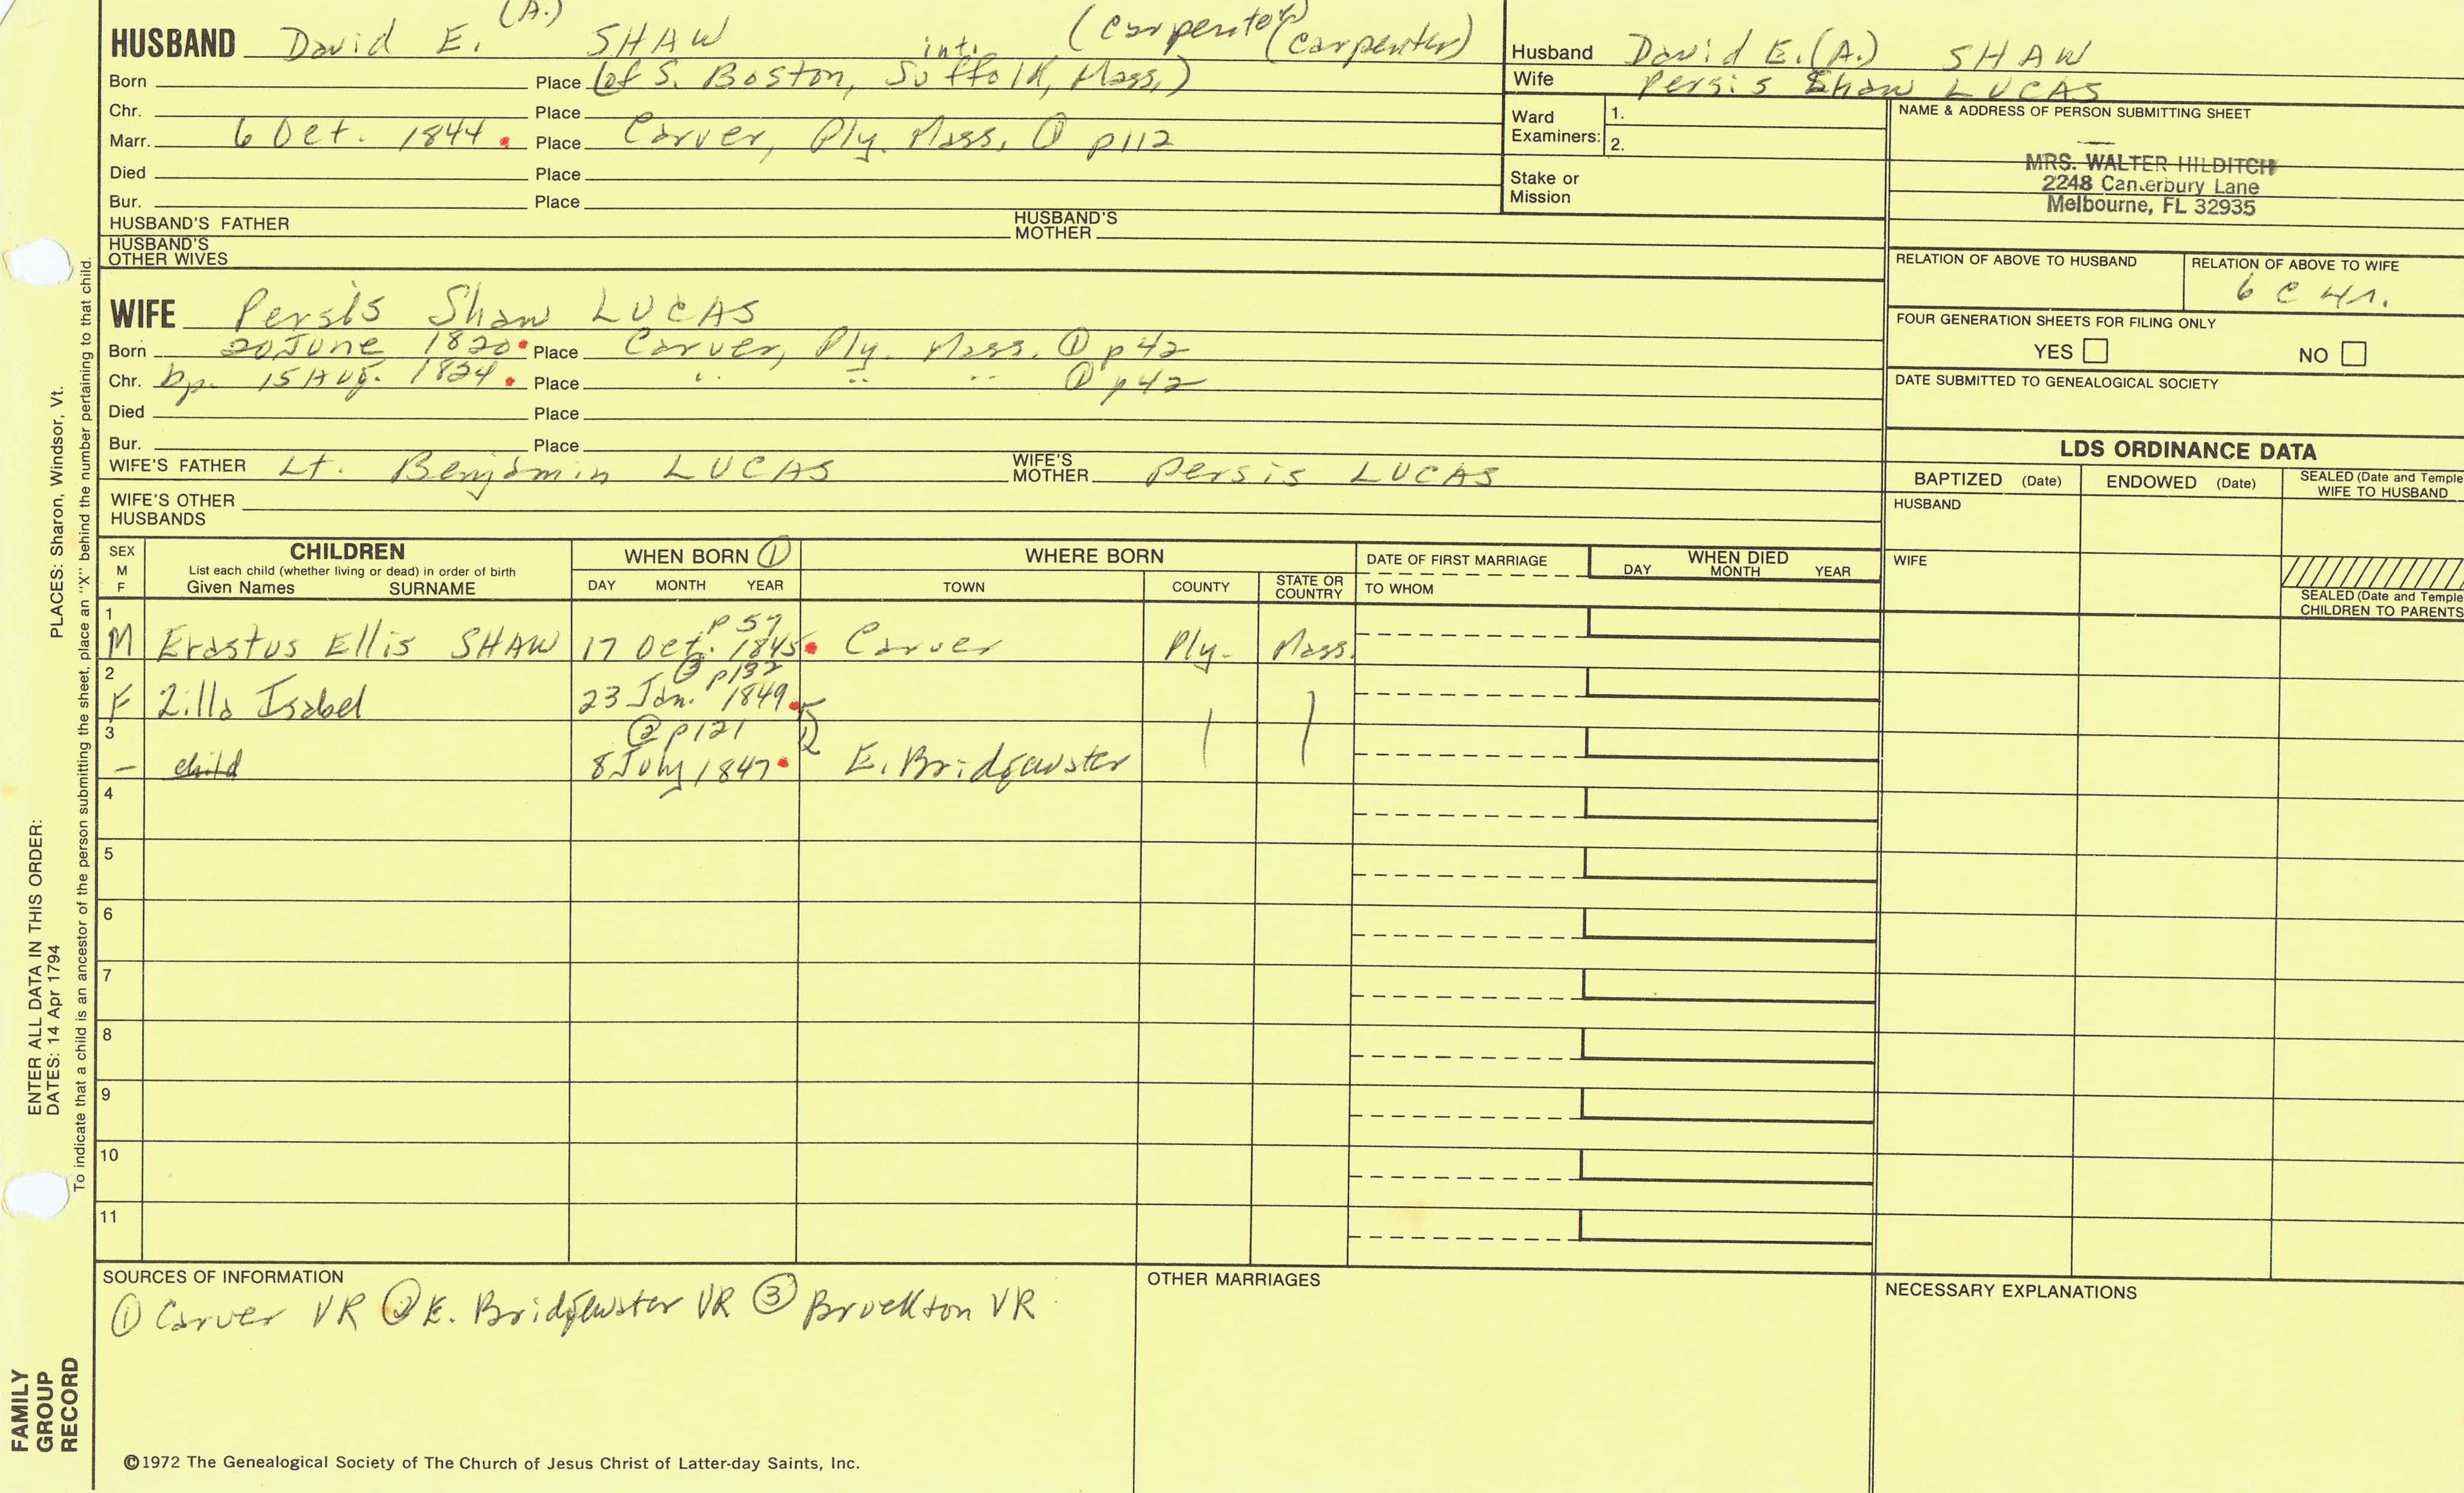 (A.)
HUSBAND David E. SHAW inti. (carpenter) (carpenter)
Born Place (of S. Boston, Suffolk, Mass.)
Chr. Place
Marr. 6 Oct. 1844. Place Carver, Ply. Mass. ① p112
Died Place
Bur. Place
HUSBAND'S FATHER HUSBAND'S MOTHER
HUSBAND'S OTHER WIVES
Husband David E. (A.) SHAW
Wife Persis Shaw LUCAS
Ward Examiners: 1.
2.
Stake or Mission
NAME & ADDRESS OF PERSON SUBMITTING SHEET
MRS. WALTER HILDITCH
2248 Canterbury Lane
Melbourne, FL 32935
RELATION OF ABOVE TO HUSBAND RELATION OF ABOVE TO WIFE
6 C 4r.
FOUR GENERATION SHEETS FOR FILING ONLY
YES NO
DATE SUBMITTED TO GENEALOGICAL SOCIETY
WIFE Persis Shaw LUCAS
Born 20 June 1820. Place Carver, Ply. Mass. ① p42
Chr. bp. 15 Aug. 1824. Place " " " ① p42
Died Place
Bur. Place
WIFE'S FATHER Lt. Benjamin LUCAS WIFE'S MOTHER Persis LUCAS
WIFE'S OTHER HUSBANDS
LDS ORDINANCE DATA
BAPTIZED (Date) ENDOWED (Date) SEALED (Date and Temple) WIFE TO HUSBAND
HUSBAND
WIFE
SEALED (Date and Temple) CHILDREN TO PARENTS
SEX M F CHILDREN WHEN BORN ① WHERE BORN DATE OF FIRST MARRIAGE WHEN DIED
List each child (whether living or dead) in order of birth
Given Names SURNAME DAY MONTH YEAR TOWN COUNTY STATE OR COUNTRY TO WHOM DAY MONTH YEAR
1 p 57
M Erastus Ellis SHAW 17 Oct. 1845. Carver Ply. Mass.
2 ③ p132
F Zilla Isabel 23 Jan. 1849.
3 ② p121
– child 8 July 1847. E. Bridgewater
4
5
6
7
8
9
10
11
SOURCES OF INFORMATION
① Carver VR ② E. Bridgewater VR ③ Brockton VR
OTHER MARRIAGES
NECESSARY EXPLANATIONS
©1972 The Genealogical Society of The Church of Jesus Christ of Latter-day Saints, Inc.
FAMILY
GROUP
RECORD
ENTER ALL DATA IN THIS ORDER:
DATES: 14 Apr 1794 PLACES: Sharon, Windsor, Vt.
To indicate that a child is an ancestor of the person submitting the sheet, place an "X" behind the number pertaining to that child.